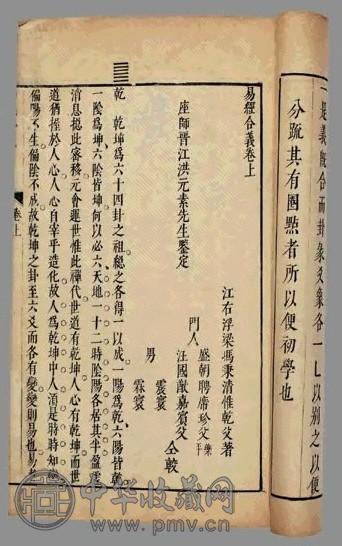 是義既合而卦彖爻象各一乚以別之以便
分疏其有圈點者所以便初學也
易經合義卷上
江右浮梁馮秉清惟乾父著
座師晉江洪元素先生鑒定
門人
盛朝聘席珍父
汪國猷嘉賓父
仝較
男
霖寰
乾 乾坤爲六十四卦之祖總之各得一以成一陽爲乾六陽皆乾
一陰爲坤六陰皆坤何以必六天地一十二時陰陽各居其半盈虛
消息挹此審移元會運世惟此禪代世道有乾坤人心有乾坤而世
道猶挃於人心人心自宰乎造化故人爲乾坤中人須是時時知
偏陽不生偏陰不成故乾坤之卦至六爻而各有變變則易也易
卷上
中华收藏网
www.pmv.cn